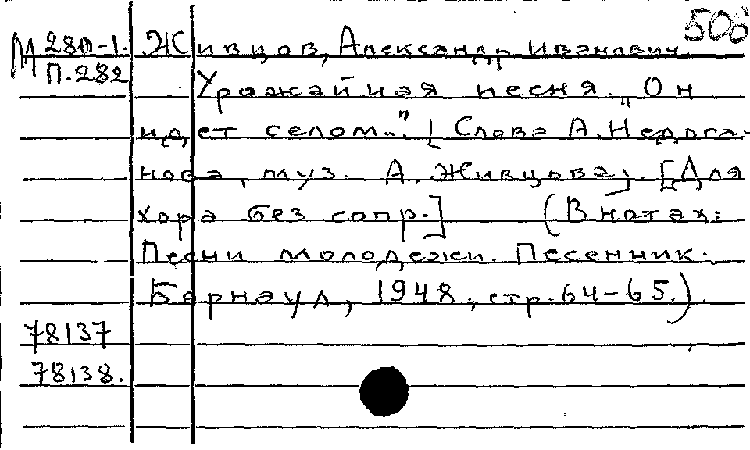 508
М 28П-1. Живцов, Александр Иванович.
П.282 Урожайная песня. „Он
идет селом..." [Слова А. Недога-
нова, муз. А. Живцова]. [Для
хора без сопр.] (В нотах:
Песни молодежи. Песенник.
Барнаул, 1948, стр. 64-65.).
78137
78138.